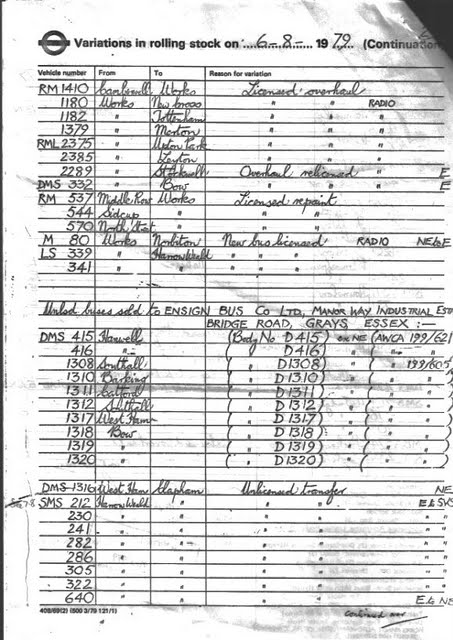 Variations in rolling stock on 6-8- 19 79. (Continuation
Vehicle number From To Reason for variation
RM 1410 Camberwell Works Licensed overhaul
1180 Works New Cross " " RADIO
1182 " Tottenham " "
1379 " Merton " "
RML 2375 " Upton Park " "
2385 " Leyton " "
2289 " Stockwell Overhaul relicensed E
DMS 332 " Bow " " E
RM 537 Middle Row Works Licensed repaint
544 Sidcup " " "
570 North Street " " "
M 80 Works Norbiton New bus licensed RADIO NE to E
LS 339 " Harrow Weald " " "
341 " " " " "
Unlsd buses sold to ENSIGN BUS Co LTD, MANOR WAY INDUSTRIAL EST
BRIDGE ROAD, GRAYS, ESSEX :—
DMS 415 Hanwell (Body No D415) on NE (AWCA 199/621
416 " ( " D416) " ( "
1308 Southall ( " D1308) " ( " 199/605
1310 Barking ( " D1310) " ( " "
1311 Catford ( " D1311) " ( " "
1312 Southall ( " D1312) " ( " "
1317 West Ham ( " D1317) " ( " "
1318 Bow ( " D1318) " ( " "
1319 " ( " D1319) " ( " "
1320 " ( " D1320) " ( " "
DMS 1316 West Ham Clapham Unlicensed transfer NE
SMS 212 Harrow Weald " " " E to SVS
230 " " " " " "
241 " " " " " "
282 " " " " " "
286 " " " " " "
305 " " " " " "
322 " " " " " "
640 " " " " E to NE
409/69(2) (500 3/79 121/1) continued over